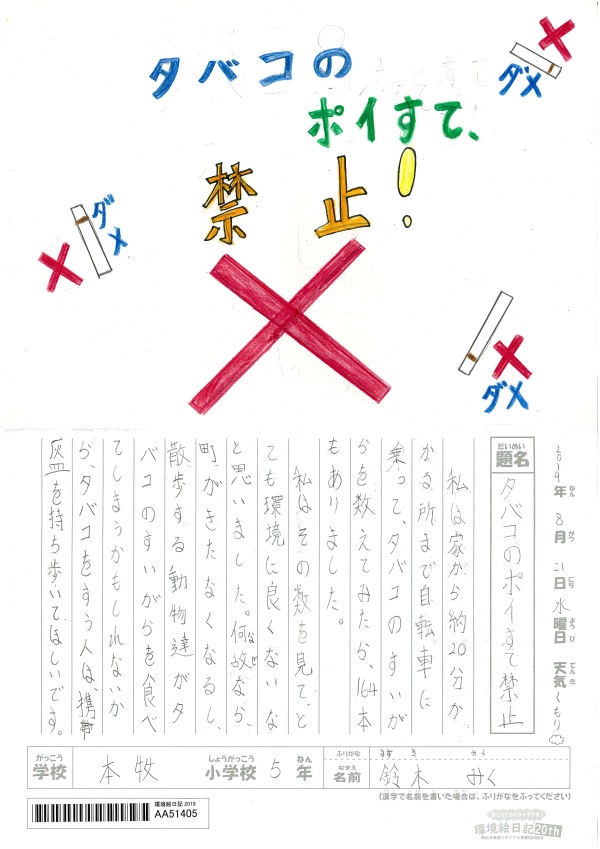 タバコの
ポイすて、
禁止!
ダメ
ダメ
ダメ
2019年 8月 21日 水曜日 天気 くもり
ねん がつ にち ようび てんき
だいめい
題名
タバコのポイすて禁止
私は家から約20分か
かる所まで自転車に
乗って、タバコのすいが
らを数えてみたら、164本
もありました。
私はその数を見て、と
ても環境に良くないな
と思いました。何故なら、
なぜ
町がきたなくなるし、
散歩する動物達がタ
バコのすいがらを食べ
てしまうかもしれないか
ら、タバコをすう人は、携帯
灰皿を持ち歩いてほしいです。
がっこう しょうがっこう ねん
学校 本牧 小学校 5年
ふりがな すずき みく
なまえ
名前 鈴木 みく
(漢字で名前を書いた場合は、ふりがなをふってください)
環境絵日記2019
AA51405
環境絵日記20th